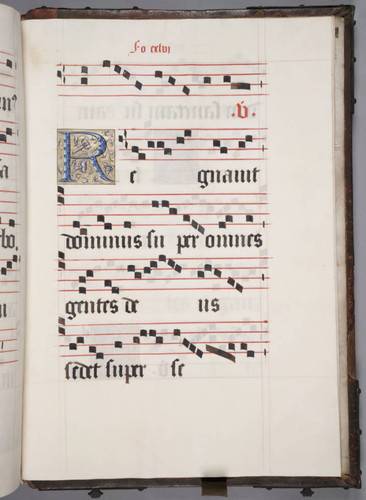 fo cclvi
.v.
Re gnauit
dominus su per omnes
gentes de us
sedet super se